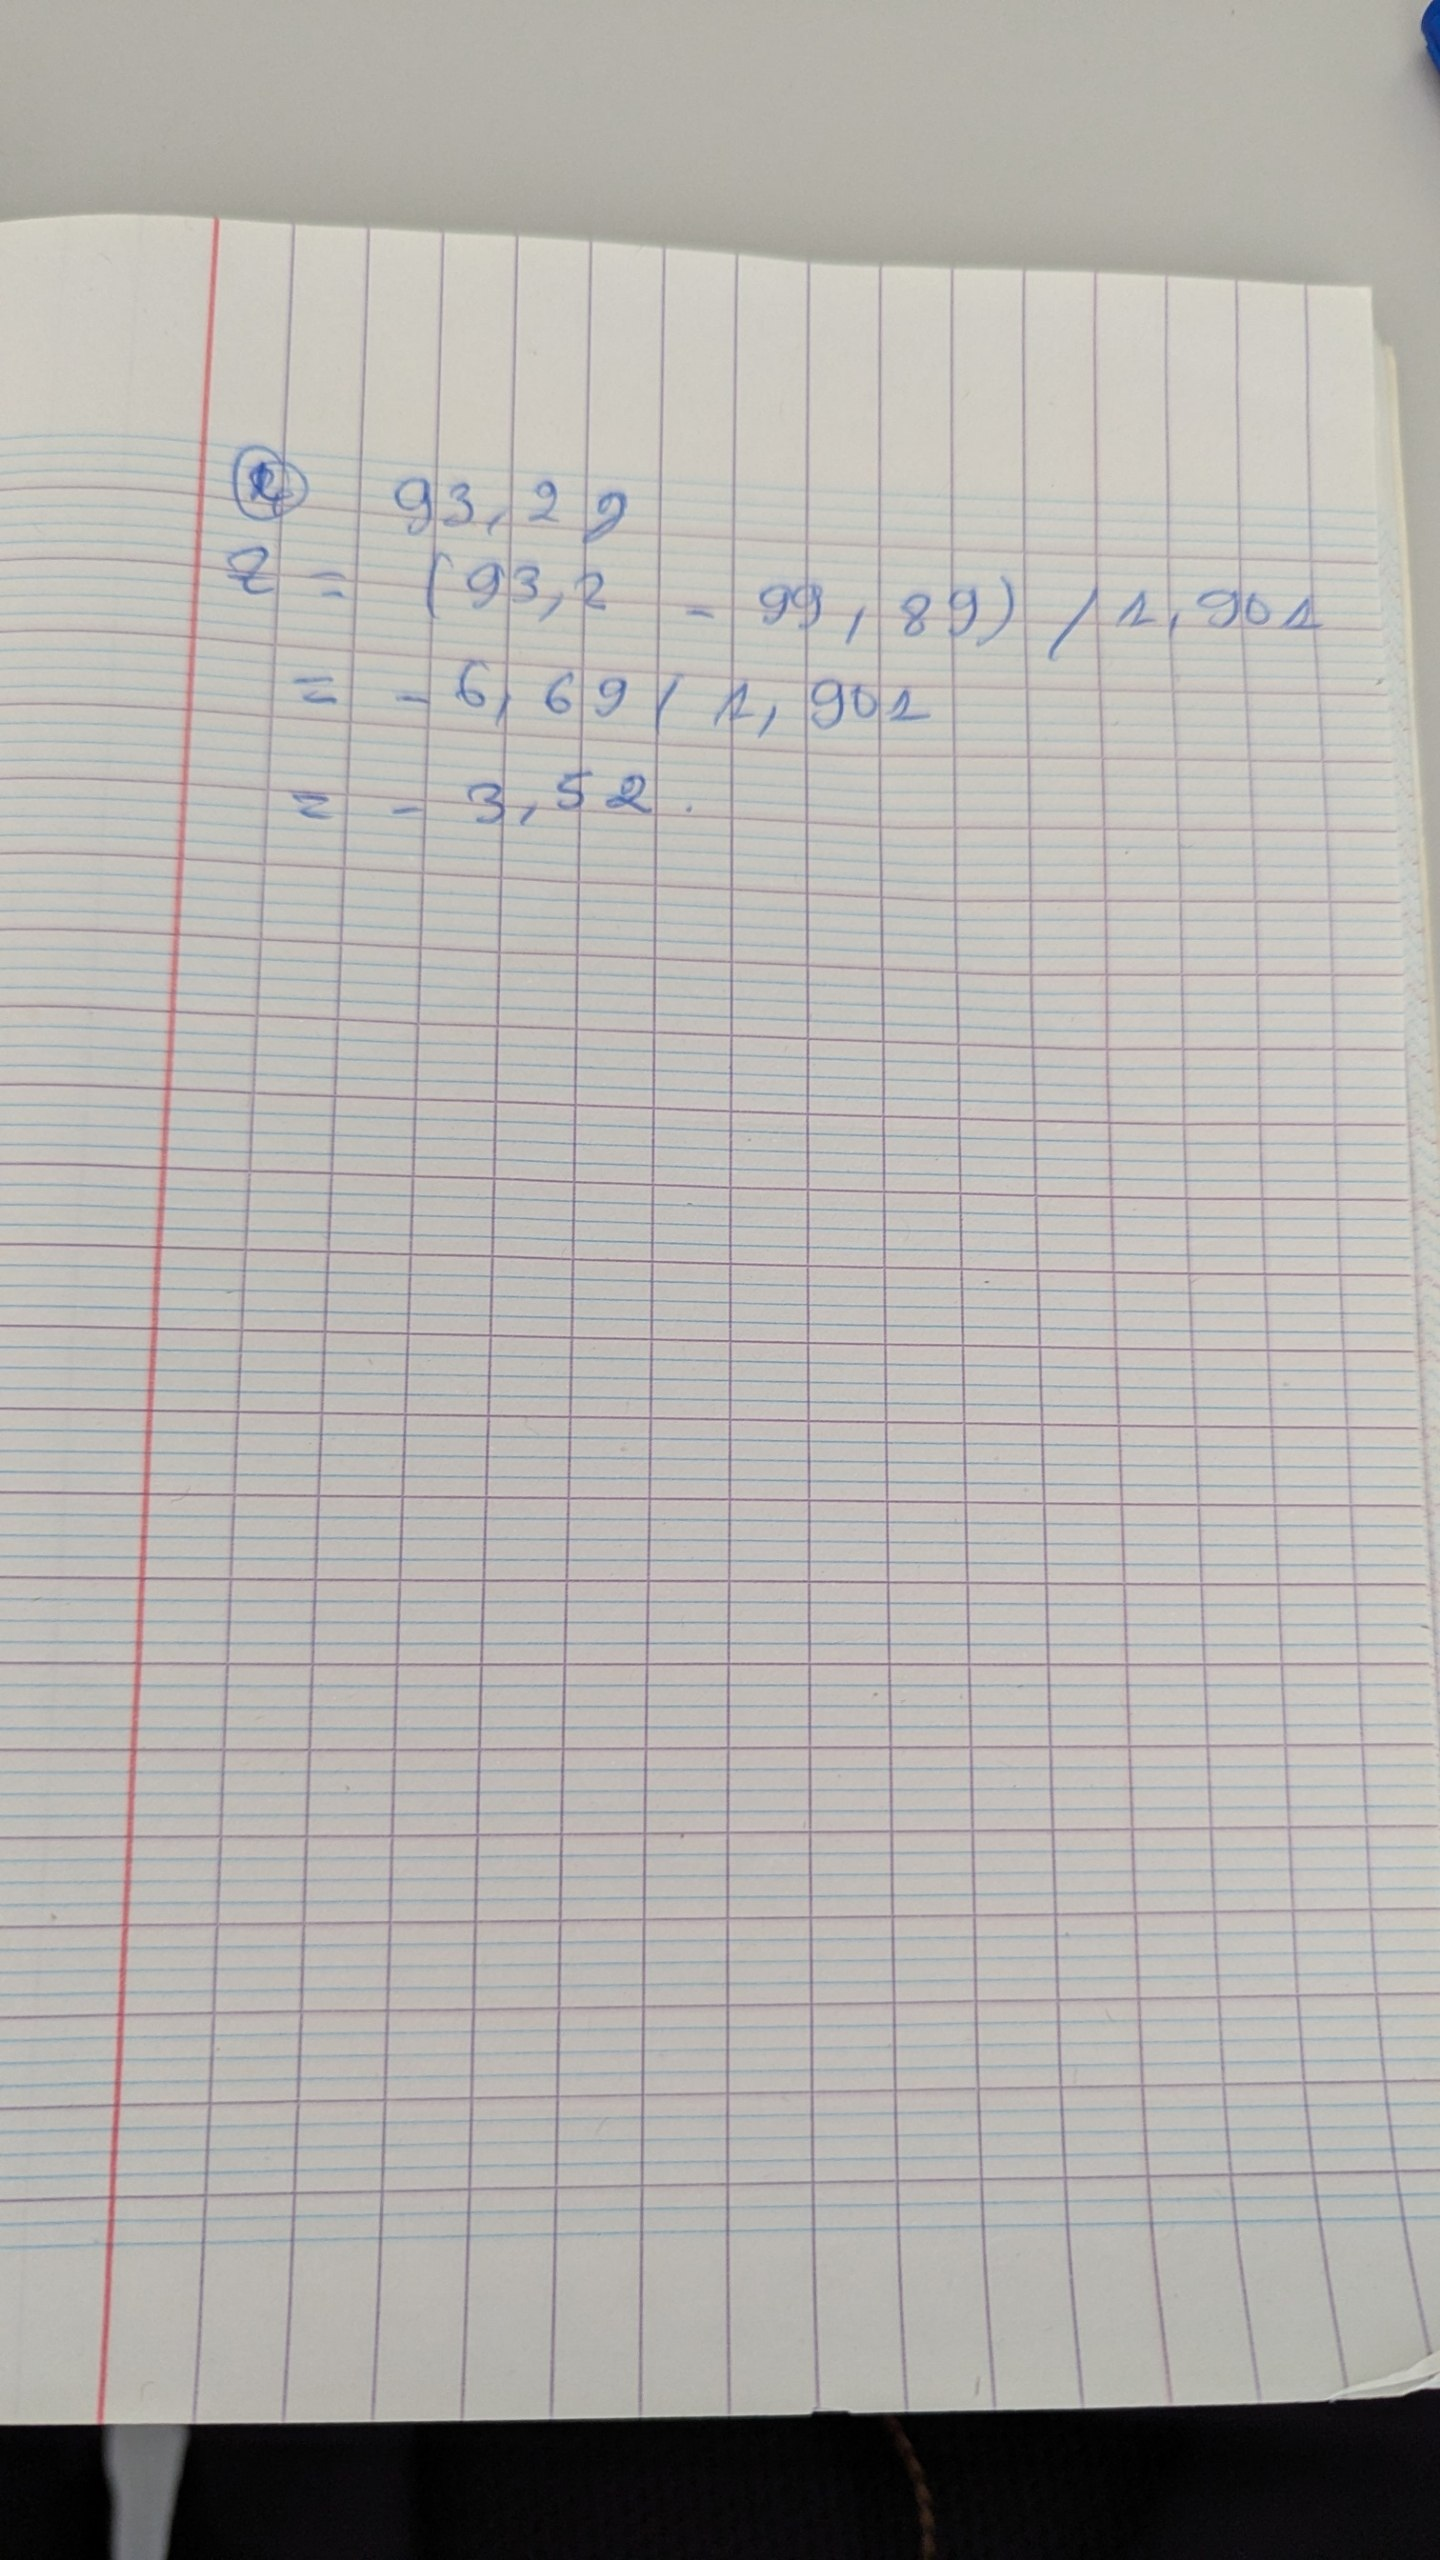 93,2 g
Z = (93,2 - 99,89) / 1,901
= - 6,69 / 1,901
= - 3,52.